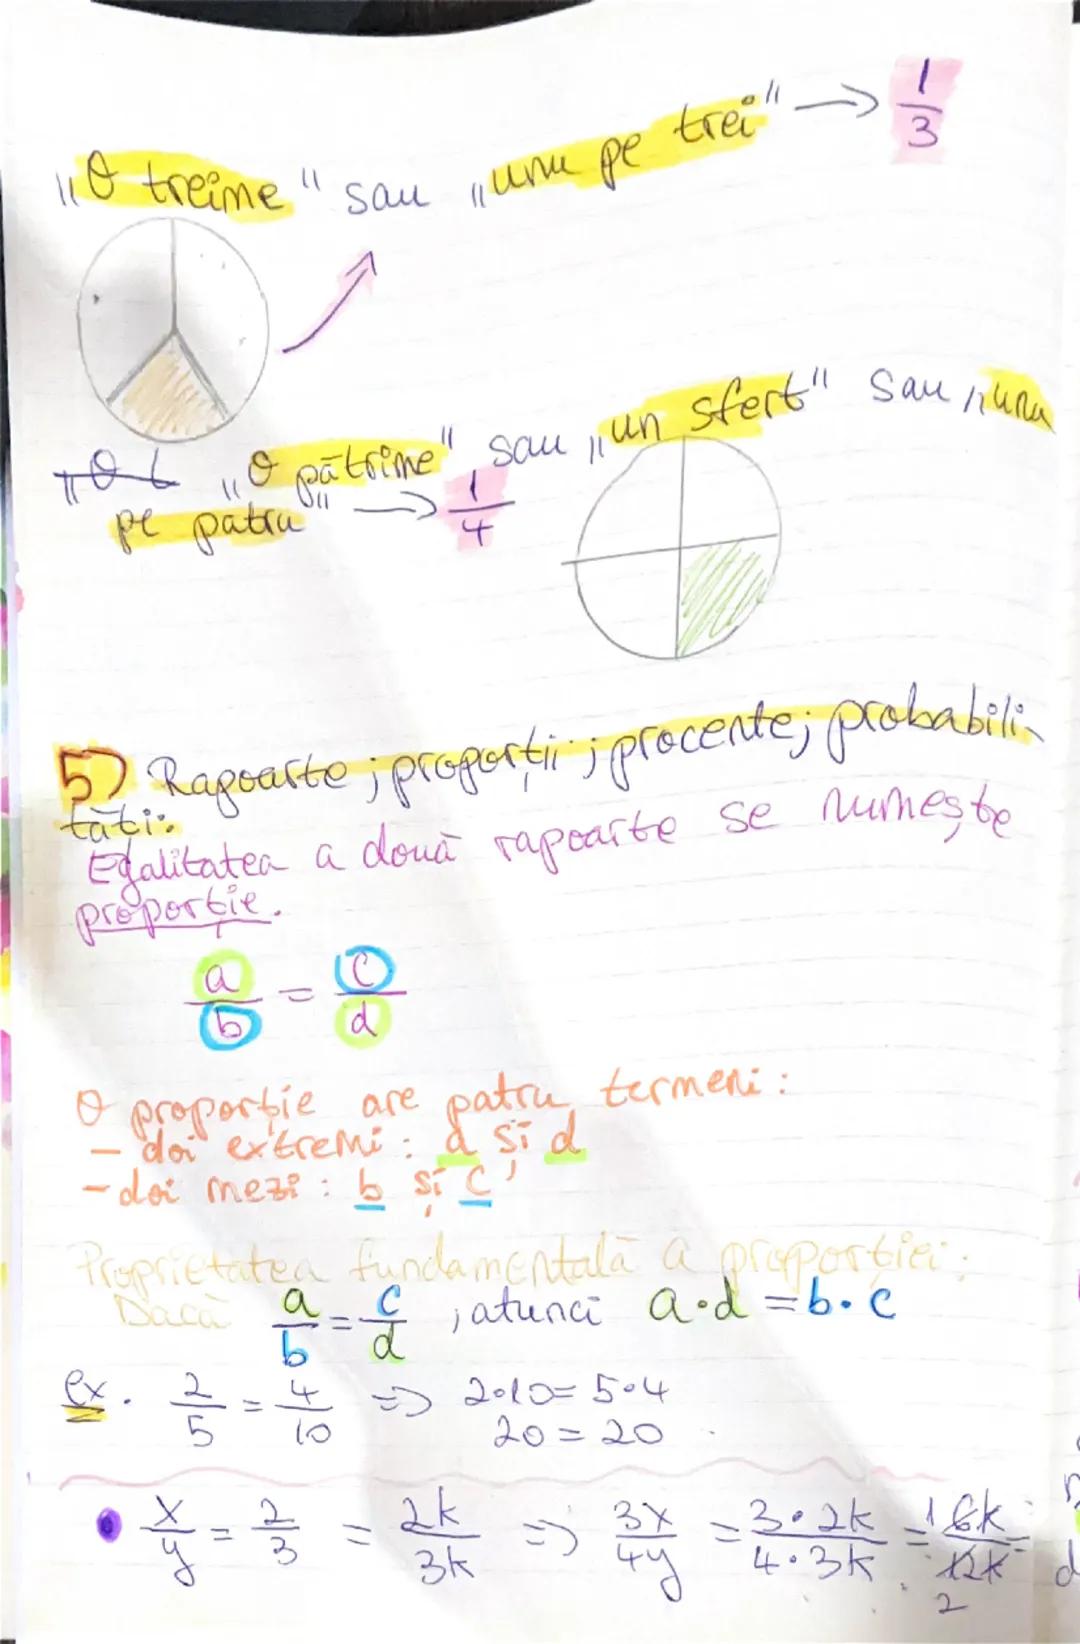 „O treime" sau „unu pe trei" → 1/3
„O t „O pătrime" sau „un sfert" sau „unu
pe patru" → 1/4
5) Rapoarte; proporții; procente; probabili-
tăți:
Egalitatea a două rapoarte se numește
proporție.
a/b = c/d
O proporție are patru termeni:
- doi extremi: a și d
- doi mezi: b și c
Proprietatea fundamentală a proporției:
Dacă a/b = c/d, atunci a·d = b·c
ex. 2/5 = 4/10 => 2·10 = 5·4
20 = 20
• x/y = 2/3 = 2k/3k => 3x/4y = 3·2k/4·3k = 1 6k/12k 2 =